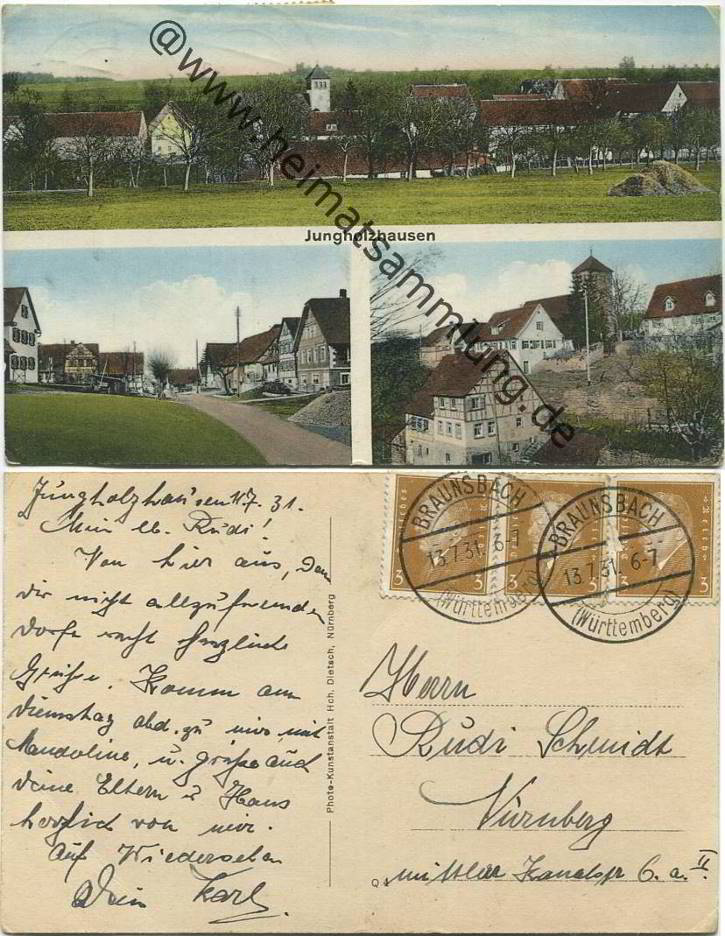 @www.heimatsammlung.de
Jungholzhausen
Jungholzhausen 11.7.31.
Mein lb. Rudi!
Von hier aus, dem
dir nicht allzufremden
Dorfe recht herzliche
Grüße. Komm am
Dienstag abd. zu mir mit
Mandoline, u. grüße auch
deine Eltern u Hans
herzlich von mir.
Auf Wiedersehen
Dein Karl.
Photo-Kunstanstalt Hch. Dietsch, Nürnberg
BRAUNSBACH
13.7.31. 6-7
(Württemberg)
BRAUNSBACH
13.7.31. 6-7
(Württemberg)
3
3 3
3 3
Herrn
Rudi Schmidt
Nürnberg
mittlere Kanalstr 6. a. II.